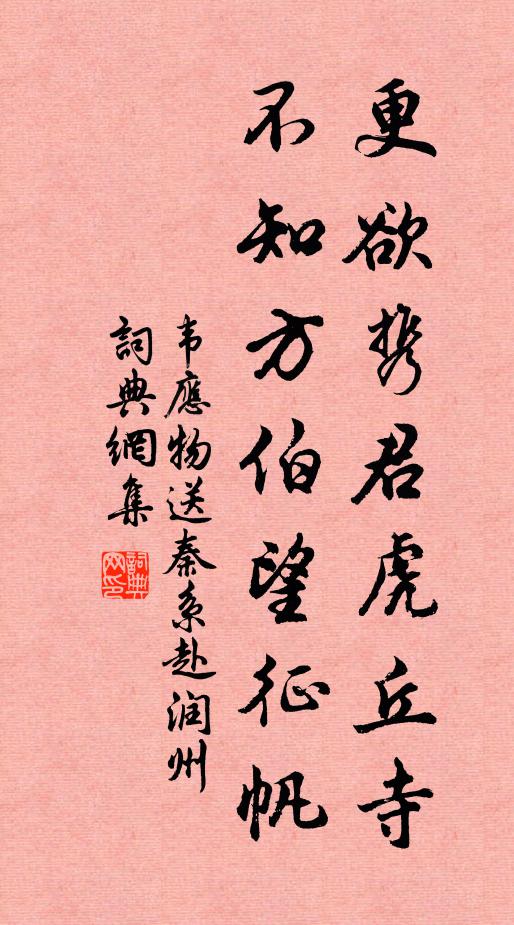 更欲携君虎丘寺
不知方伯望征帆
韦應物送秦系赴润州
詞典網集
詞典网印